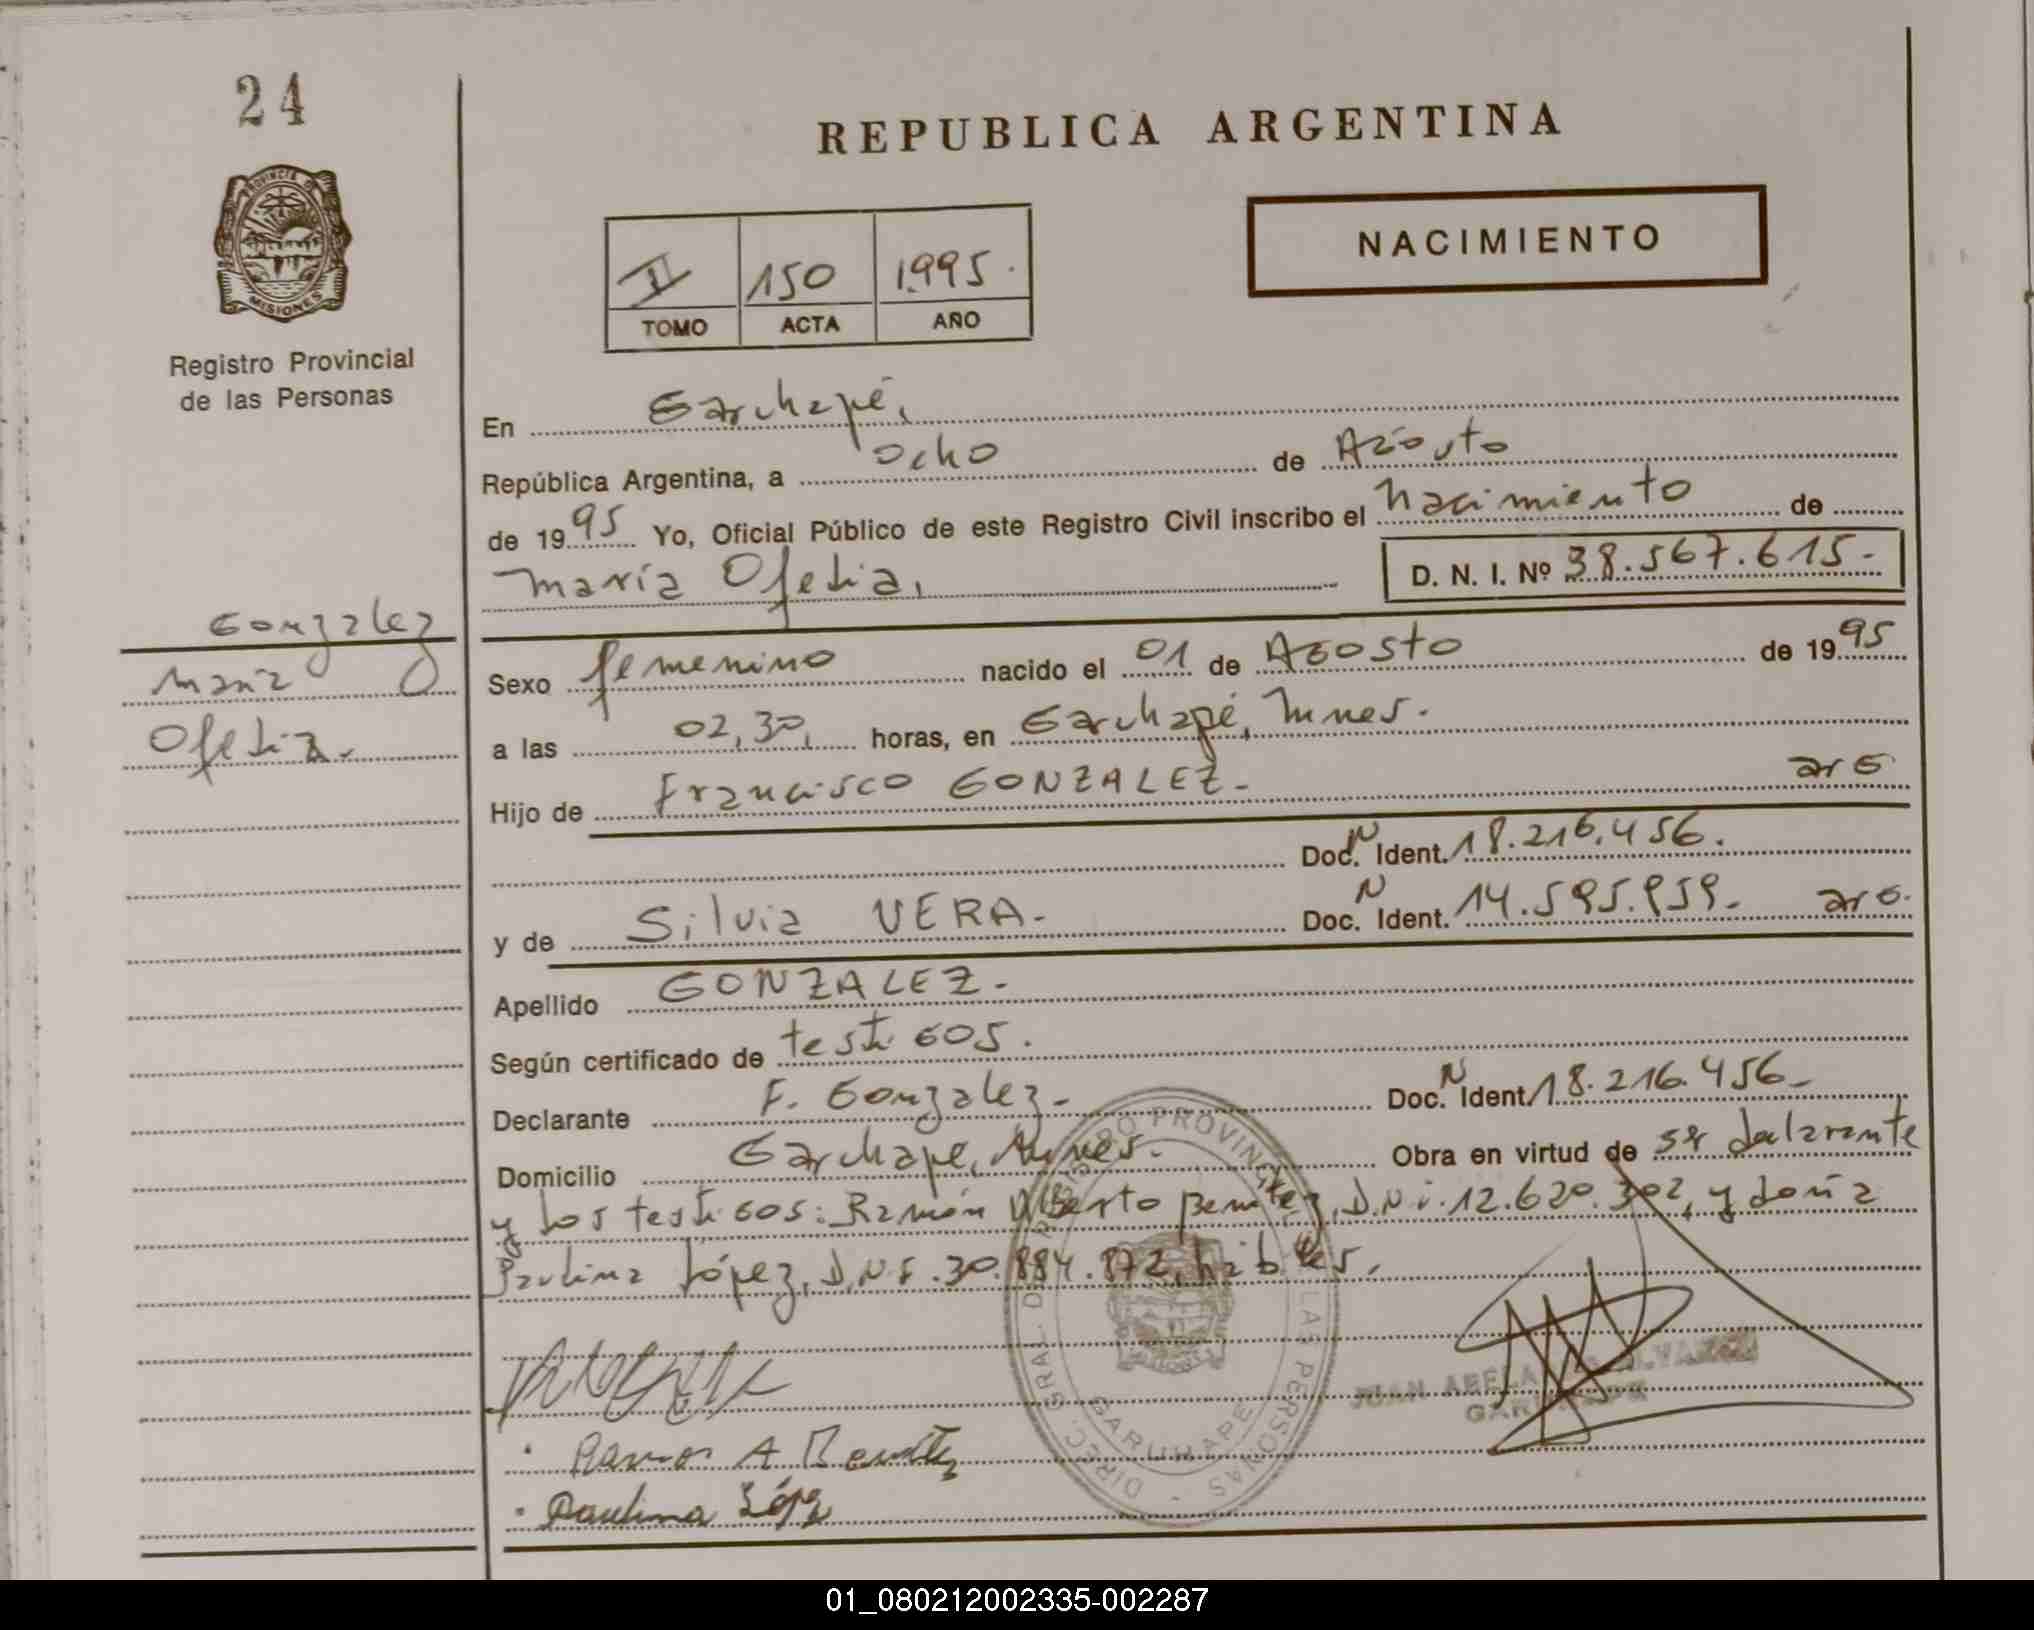 24
REPUBLICA ARGENTINA
PROVINCIA DE
MISIONES
Registro Provincial
de las Personas
NACIMIENTO
II 150 1.995.
TOMO ACTA AÑO
En Garuhapé,
República Argentina, a ocho de Agosto
de 19 95 Yo, Oficial Público de este Registro Civil inscribo el nacimiento de
maría Ofelia, D. N. I. Nº 38.567.615.-
Gonzalez
maria
Ofelia.
Sexo femenino nacido el 01 de AGOSTO de 19 95
a las 02,30, horas, en Garuhapé, Mnes.
Hijo de Francisco GONZALEZ.- arg.
Doc. N Ident. 18.216.456.
y de Silvia VERA.- Doc. N Ident. 14.595.959.- arg.
Apellido GONZALEZ.-
Según certificado de testigos.
Declarante F. Gonzalez.- Doc. N Ident. 18.216.456.-
Domicilio Garuhape, Mnes. Obra en virtud de ser declarante
y los testigos: Ramón Alberto Benitez, D.N.i. 12.620.302, y doña
Paulina López, D.N.I. 30.884.872, hábiles.
DIREC. GRAL. DEL REGISTRO PROVINCIAL DE LAS PERSONAS
GARUHAPE
JUAN ALVAREZ
GARUHAPE
Ramon A Benitez
Paulina López
01_080212002335-002287